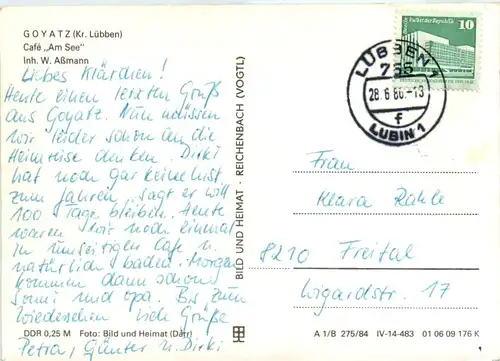 GOYATZ (Kr. Lübben)
Café „Am See"
Inh. W. Aßmann
Liebes Klärchen!
Heute einen letzten Gruß
aus Goyatz. Nun müssen
wir leider schon an die
Heimreise denken. Dirki
hat noch gar keine Lust
zum fahren, sagt er will
100 Tage bleiben. Heute
waren wir noch einmal
in unseitigen Cafe u.
natürlich baden. Morgen
kommen dann schon
Sonni und Opa. Bis zum
Wiedersehen liebe Grüße
Petra, Günter u. Dirki
DDR 0,25 M Foto: Bild und Heimat (Darr)
BILD UND HEIMAT · REICHENBACH (VOGTL)
Palast der Republik
10
LÜBBEN 1
755
28.6.86.-13
f
LUBIN 1
Frau
Klara Rahle
8210 Freital
Wigardstr. 17
A 1/B 275/84 IV-14-483 01 06 09 176 K